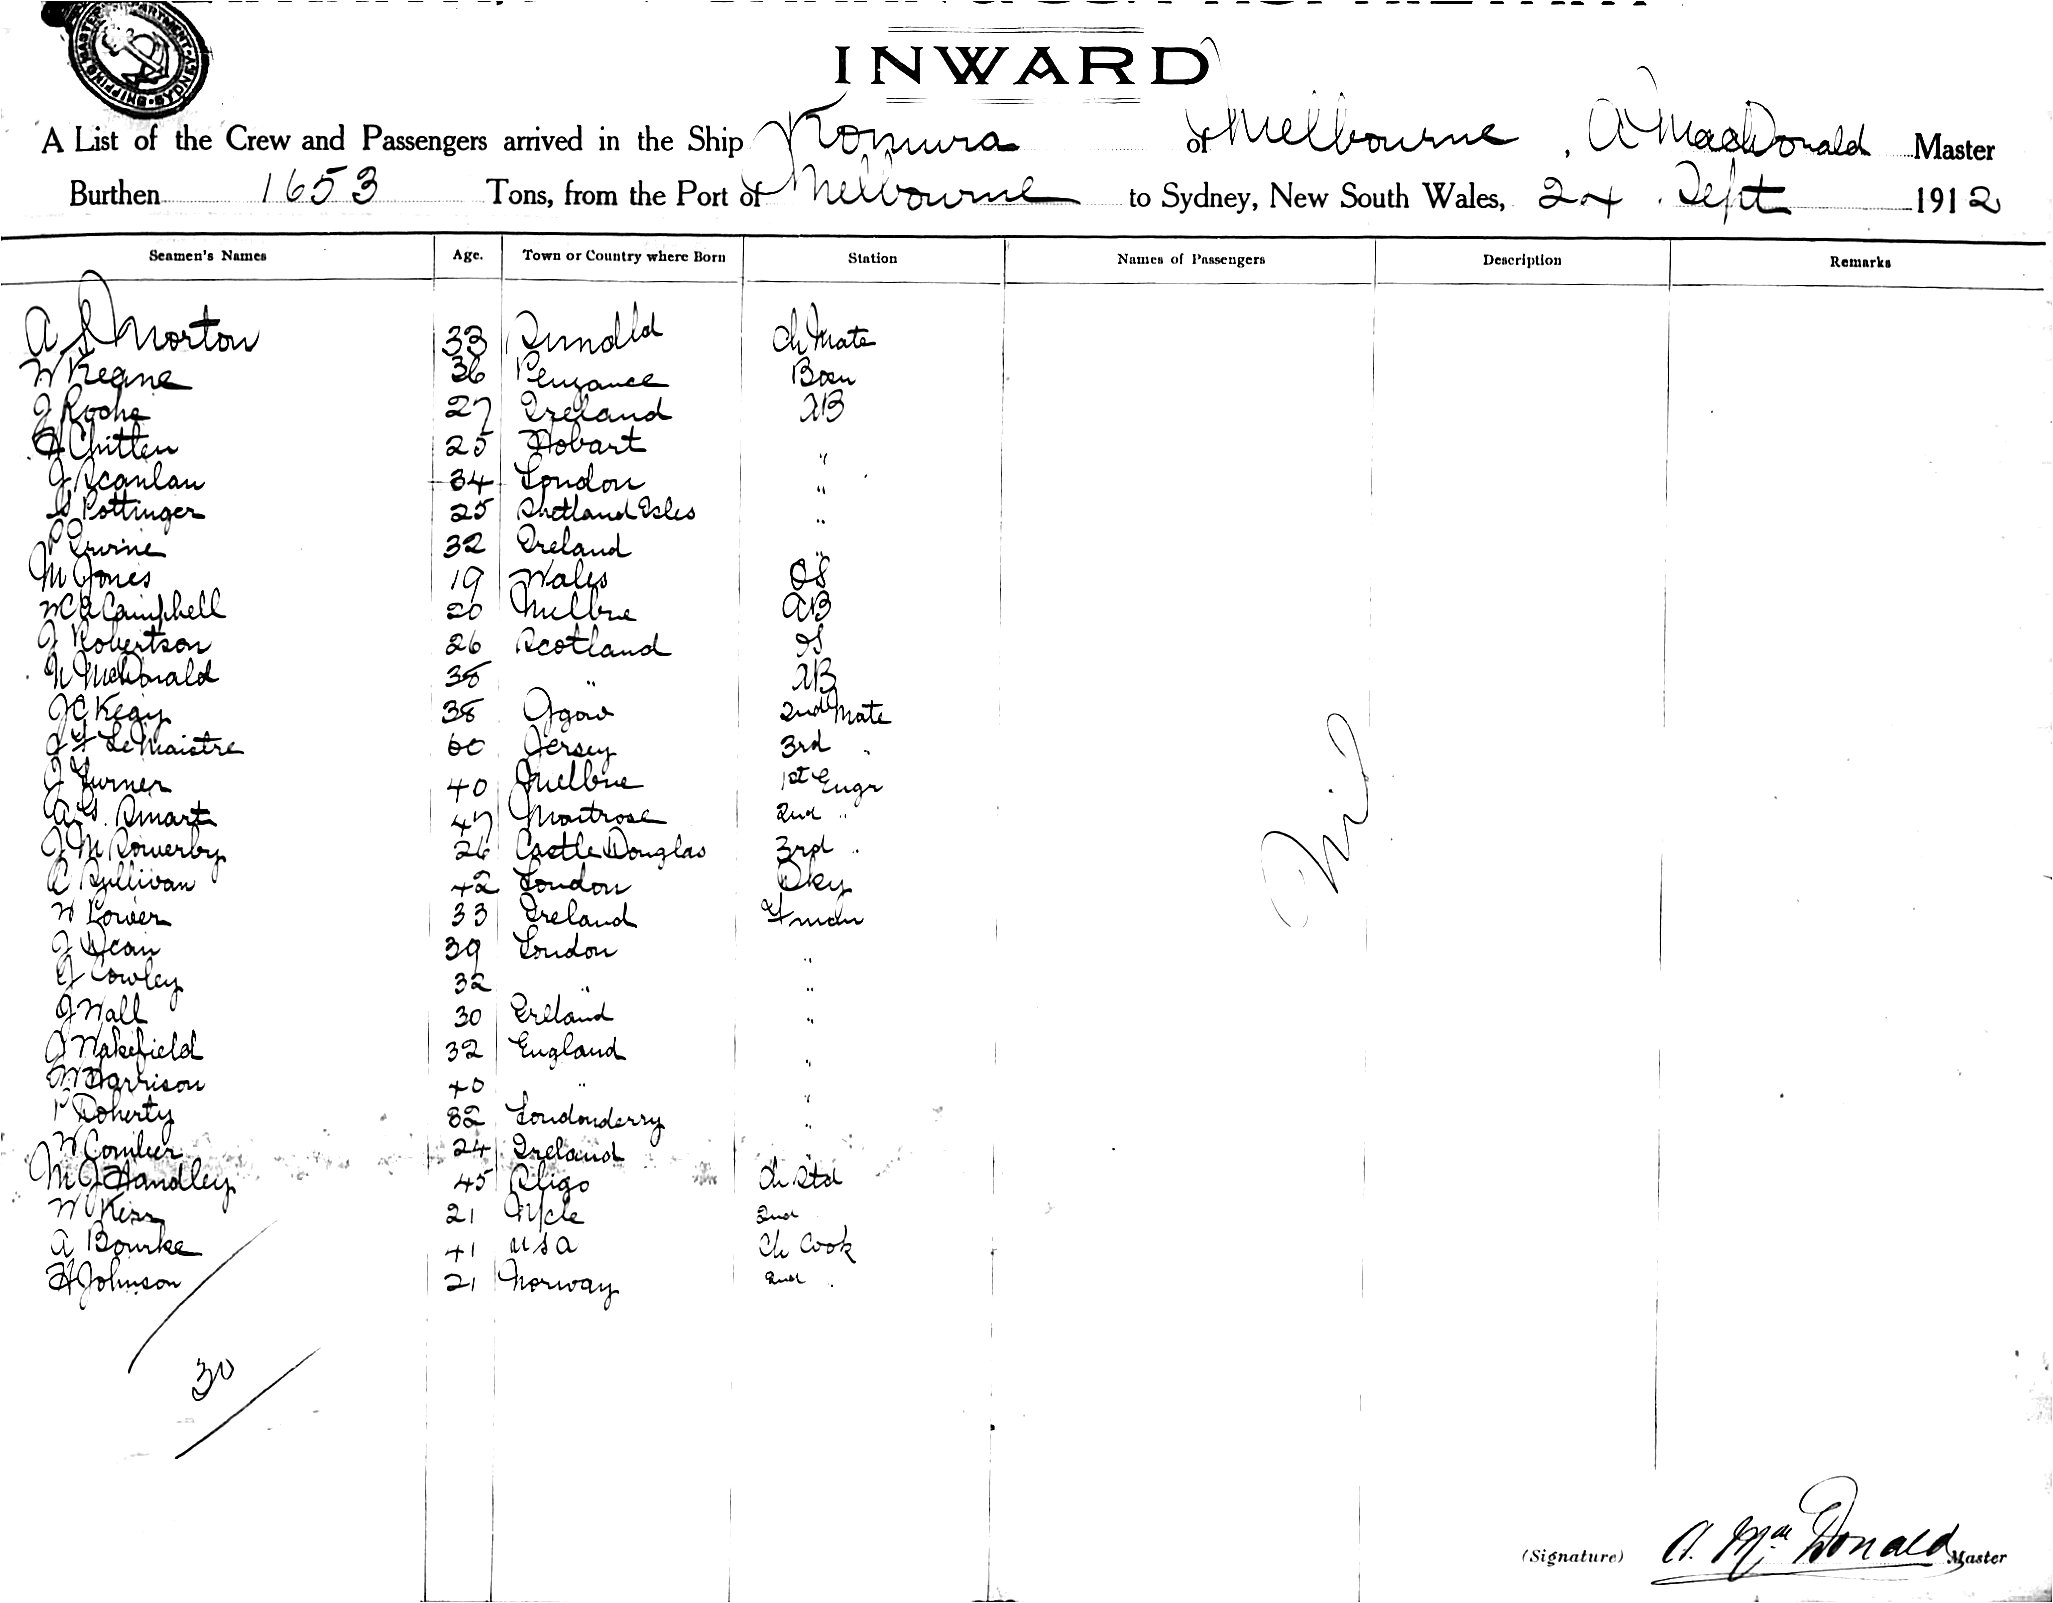 INWARD
A List of the Crew and Passengers arrived in the Ship Komura of Melbourne, A MacDonald Master
Burthen 1653 Tons, from the Port of Melbourne to Sydney, New South Wales, 24 Sept 1912
Seamen's Names Age. Town or Country where Born Station Names of Passengers Description Remarks
A S Morton 33 Ch Mate
W Keane 36 Penzance Bosn
J Roche 27 Ireland AB
H Chitten 25 Hobart "
J Scanlan 34 London "
S Pottinger 25 Shetland Isles "
P Irvine 32 Ireland "
M Jones 19 Wales OS
W C A Campbell 20 Melbne AB
J Robertson 26 Scotland OS
N McDonald 38 " AB
J C Kegy 38 Ggow 2nd Mate
J F LeMaistre 60 Jersey 3rd "
J Turner 40 Melbne 1st Engr
A G. Smart 47 Montrose 2nd "
J M Sowerby 26 Castle Douglas 3rd "
C Sullivan 42 London Dky
W Power 33 Ireland Fman
J Dean 39 London "
J Cowley 32 " "
J Wall 30 Ireland "
J Wakefield 32 England "
W Harrison 40 " "
P Doherty 32 Londonderry "
W Comber 24 Ireland "
M J Handley 45 Sligo Ch Std
W Kerr 21 N'cle 2nd
A Bourke 41 USA Ch Cook
H Johnson 21 Norway 2nd "
Nil
30
(Signature) A. MacDonald Master